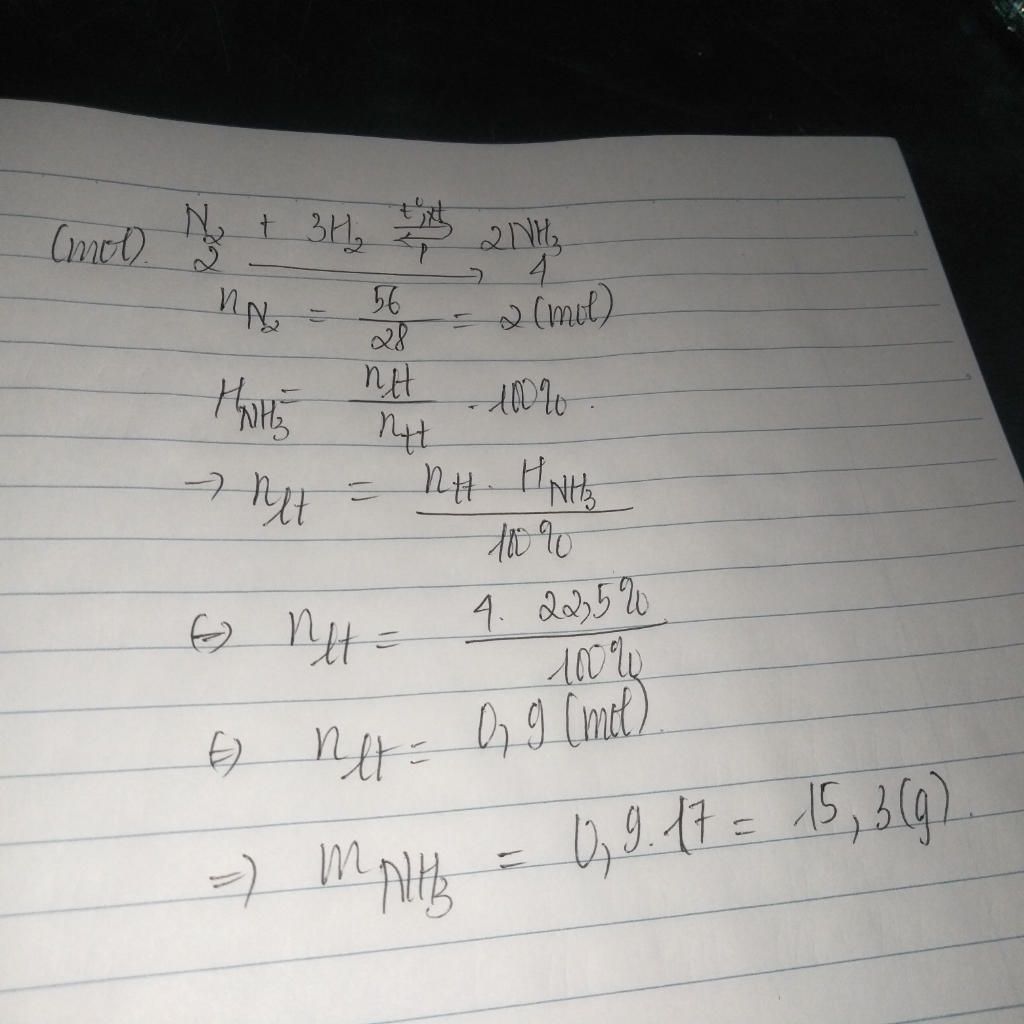 N₂ + 3H₂ ⇌ (t°, xt, p) 2NH₃
(mol). 2 ⟶ 4
n_N₂ = 56/28 = 2 (mol)
H_NH₃ = n_tt/n_tt . 100%.
→ n_lt = n_tt . H_NH₃/100%
⇔ n_lt = 4. 22,5%/100%
⇔ n_lt = 0,9 (mol).
⇒ m_NH₃ = 0,9.17 = 15,3(g).